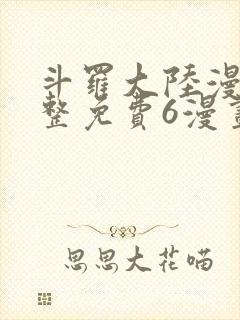 斗羅大陸漫
整免費6漫畫
思思大花喵